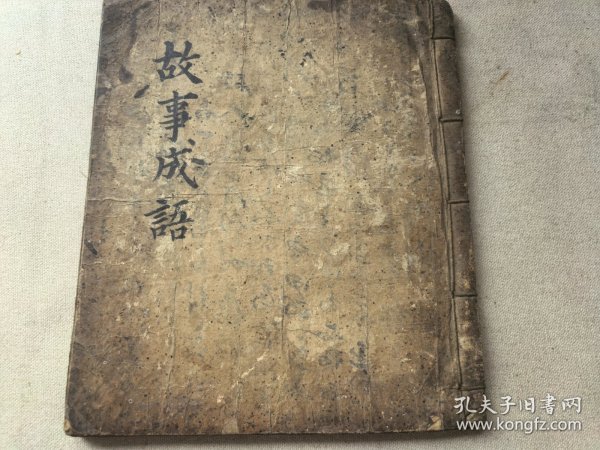 故事成語
孔夫子旧书网
www.kongfz.com